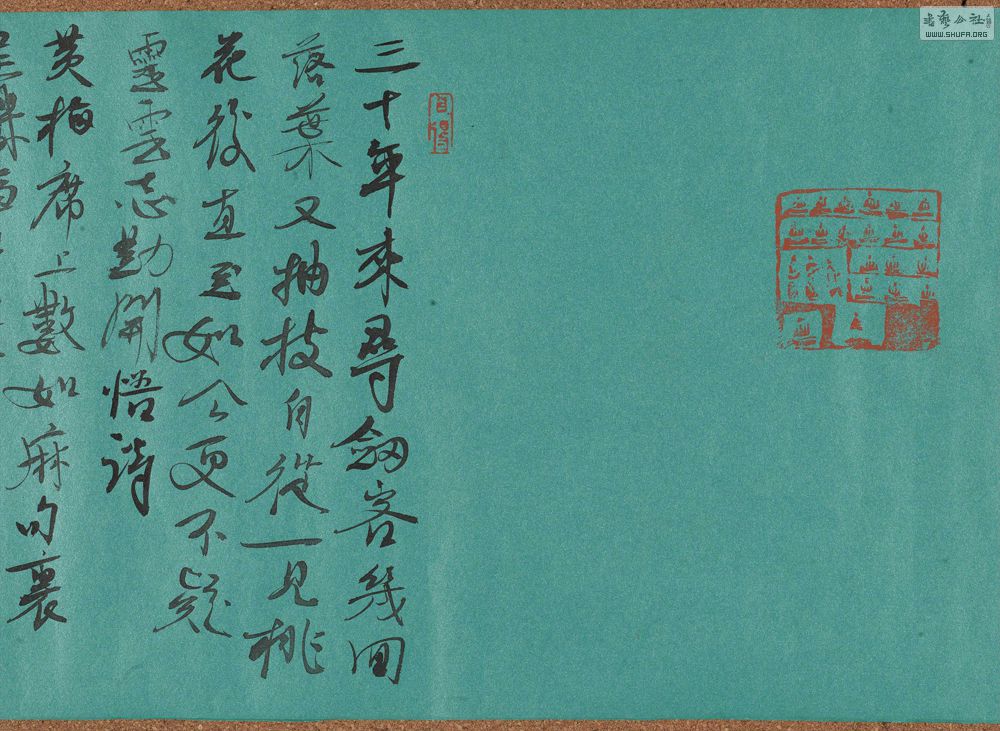 三十年來尋劔客幾回
落葉又抽枝自從一見桃
花後直至如今更不疑
靈雲志勤開悟詩
黃梅席上數如麻句裏
書藝公社
WWW.SHUFA.ORG